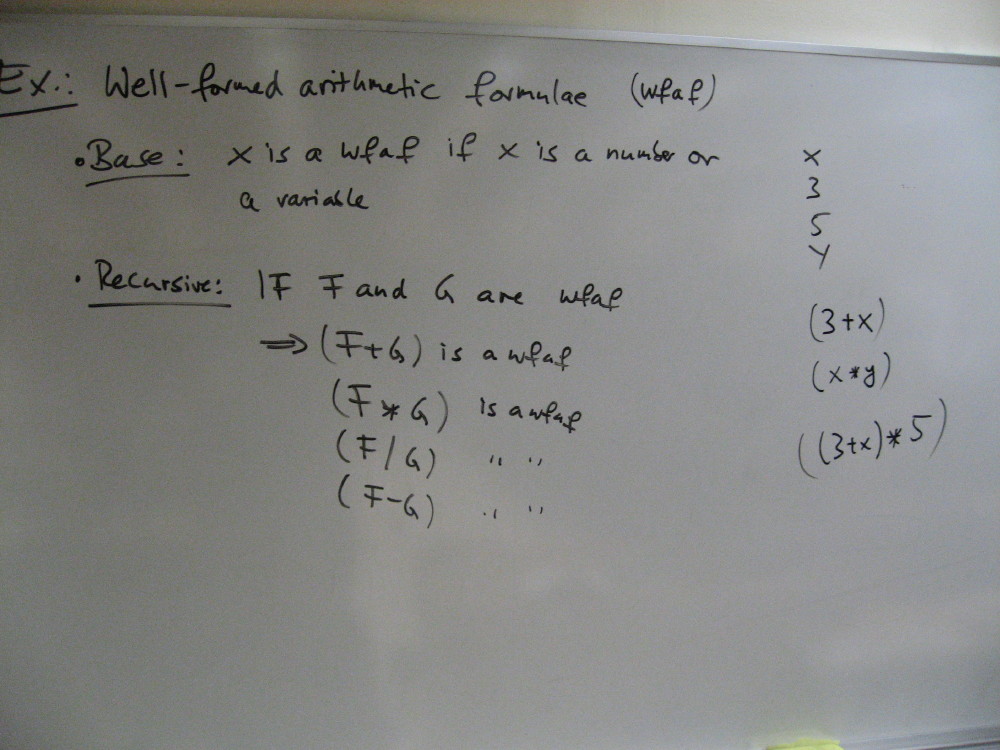 Ex.: Well-formed arithmetic formulae (wfaf)
• Base: x is a wfaf if x is a number or
a variable
x
3
5
y
• Recursive: IF F and G are wfaf
⇒ (F+G) is a wfaf
(F * G) is a wfaf
(F/G) " "
(F-G) " "
(3+x)
(x*y)
((3+x)*5)